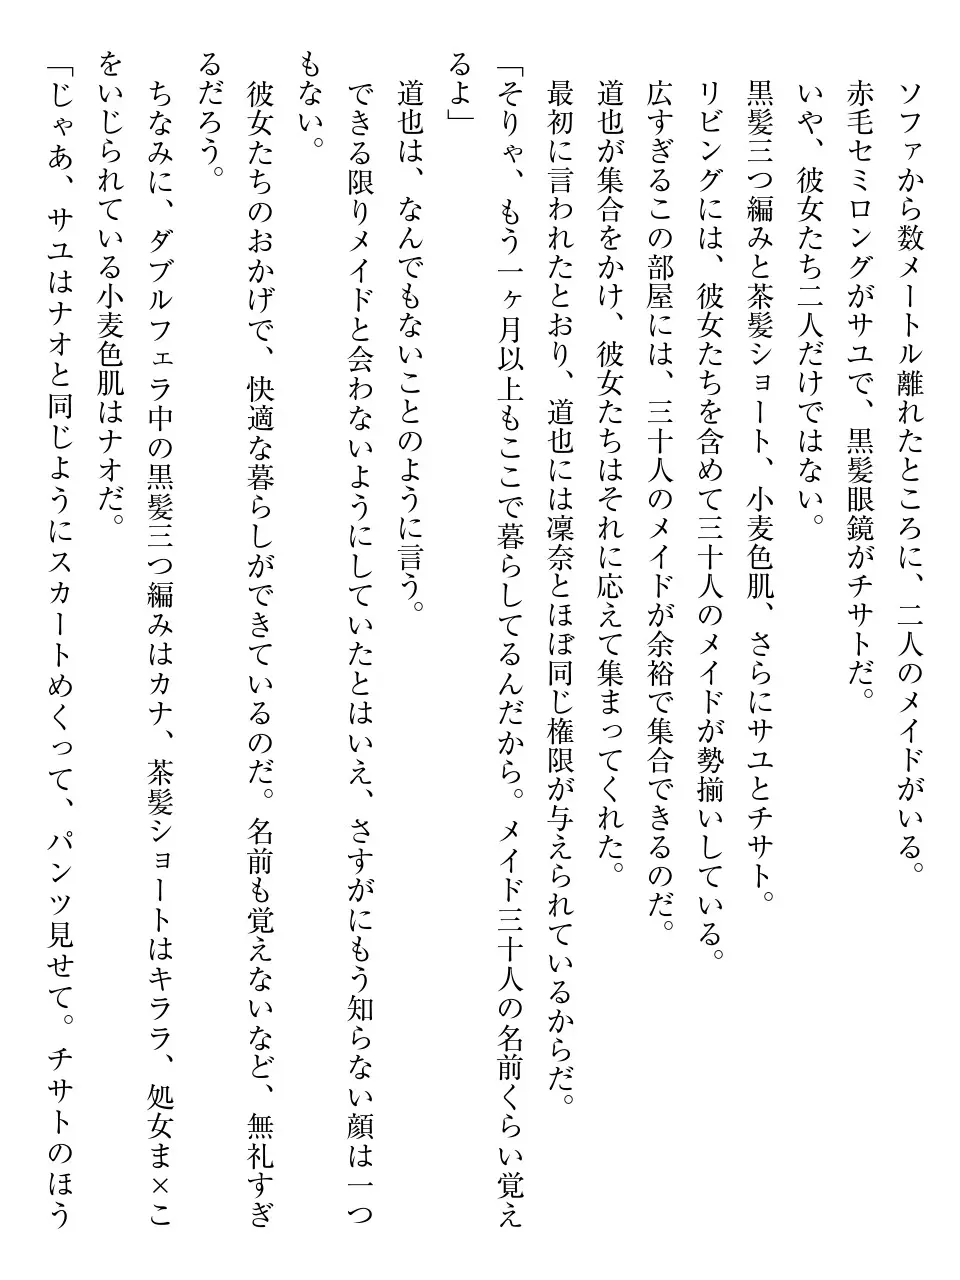 ソファから数メートル離れたところに、二人のメイドがいる。
赤毛セミロングがサユで、黒髪眼鏡がチサトだ。
いや、彼女たち二人だけではない。
黒髪三つ編みと茶髪ショート、小麦色肌、さらにサユとチサト。
リビングには、彼女たちを含めて三十人のメイドが勢揃いしている。
広すぎるこの部屋には、三十人のメイドが余裕で集合できるのだ。
道也が集合をかけ、彼女たちはそれに応えて集まってくれた。
最初に言われたとおり、道也には凜奈とほぼ同じ権限が与えられているからだ。
「そりゃ、もう一ヶ月以上もここで暮らしてるんだから。メイド三十人の名前くらい覚え
るよ」
道也は、なんでもないことのように言う。
できる限りメイドと会わないようにしていたとはいえ、さすがにもう知らない顔は一つ
もない。
彼女たちのおかげで、快適な暮らしができているのだ。名前も覚えないなど、無礼すぎ
るだろう。
ちなみに、ダブルフェラ中の黒髪三つ編みはカナ、茶髪ショートはキララ、処女ま×こ
をいじられている小麦色肌はナオだ。
「じゃあ、サユはナオと同じようにスカートめくって、パンツ見せて。チサトのほう